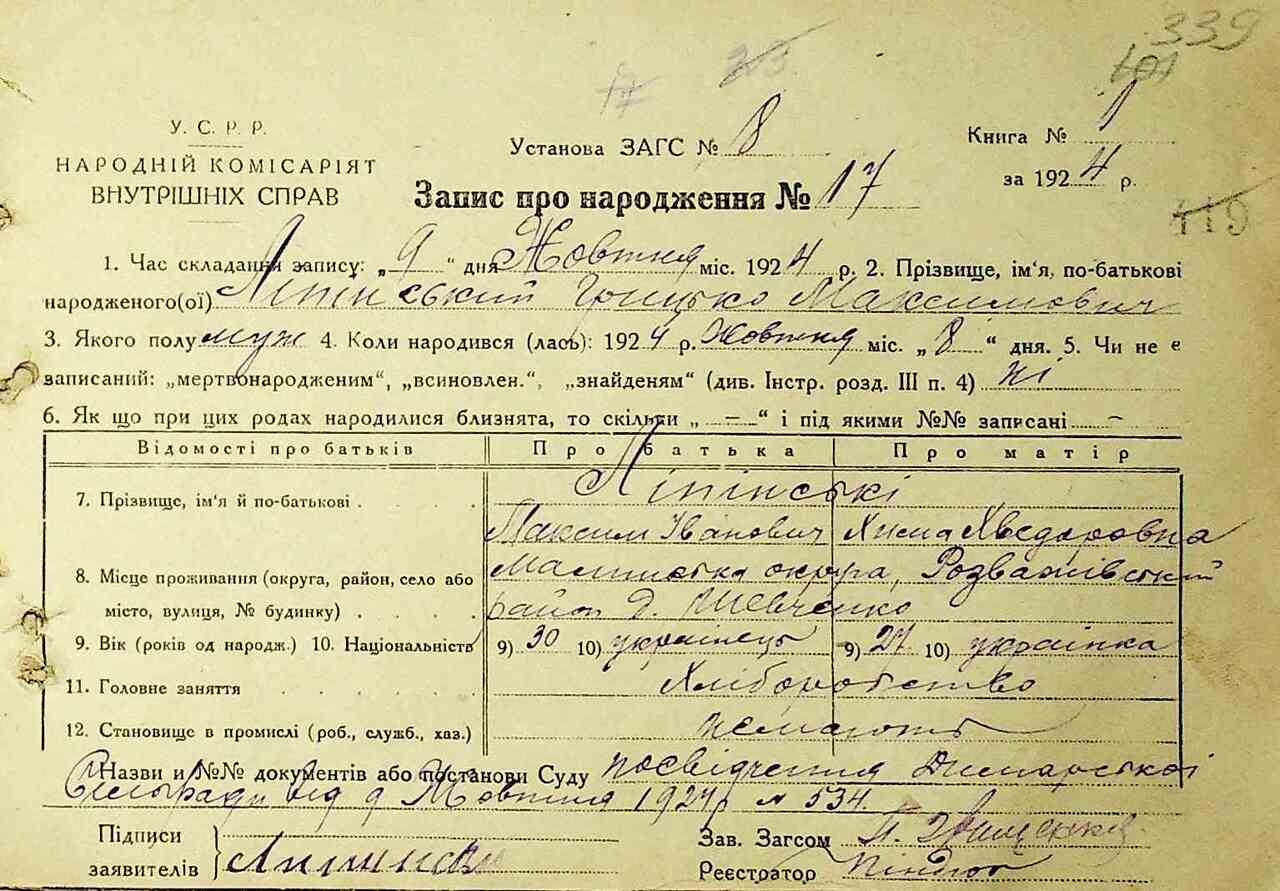 339
101
23.
17
У. С. Р. Р.
НАРОДНІЙ КОМІСАРІЯТ
ВНУТРІШНІХ СПРАВ
Установа ЗАГС № 8
Книга № 1
за 1924 р.
Запис про народження № 17
119
1. Час складання запису: „9“ дня Жовтня міс. 1924 р. 2. Прізвище, ім'я, по-батькові
народженого(ої) Ліпінський Грицько Максимович
3. Якого полу муж 4. Коли народився (лась): 1924 р. Жовтня міс. „8“ дня. 5. Чи не є
записаний: „мертвонародженим“, „всиновлен.“, „знайденям“ (див. Інстр. розд. III п. 4) ні
6. Як що при цих родах народилися близнята, то скільки „—“ і під якими №№ записані —
Відомості про батьків Про батька Про матір
7. Прізвище, ім'я й по-батькові Ліпінські
Максим Іванович Хима Хведоровна
8. Місце проживання (округа, район, село або Малинська округа, Розважівський
місто, вулиця, № будинку) район д. Шевченко
9. Вік (років од народж.) 10. Національність 9) 30 10) українець 9) 27 10) українка
11. Головне заняття Хліборобство
12. Становище в промислі (роб., служб., хаз.) немають
Назви и №№ документів або постанови Суду посвідчення Димарської
Сільради від 9 Жовтня 1924 р № 534
Підписи
заявителів
Зав. Загсом
Реєстратор